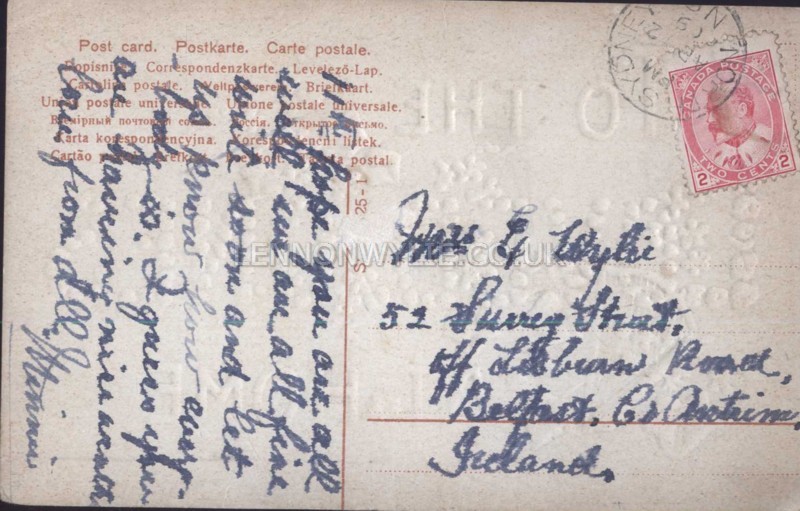 Post card. Postkarte. Carte postale.
Dopisnice. Correspondenzkarte. Levelező-Lap.
Cartolina postale. Briefkaart.
Unión postale universelle. Unione postale universale.
Всемірный почтовый Россія. Открытое письмо.
Karta korespondencyjna. Korespondenční lístek.
Cartão postal. postal.
25-1
SYDNEY
CANADA POSTAGE
2 TWO CENTS 2
Hope you are all
well we are all fine
write soon and let
us know how every-
body is. I guess you
are having nice weath
love from all.
Minnie
Mrs G Wylie
52 Surrey Street,
off Lisburn Road,
Belfast, Co Antrim,
Ireland.
LENNONWYLIE.CO.UK
TO THE
HOME